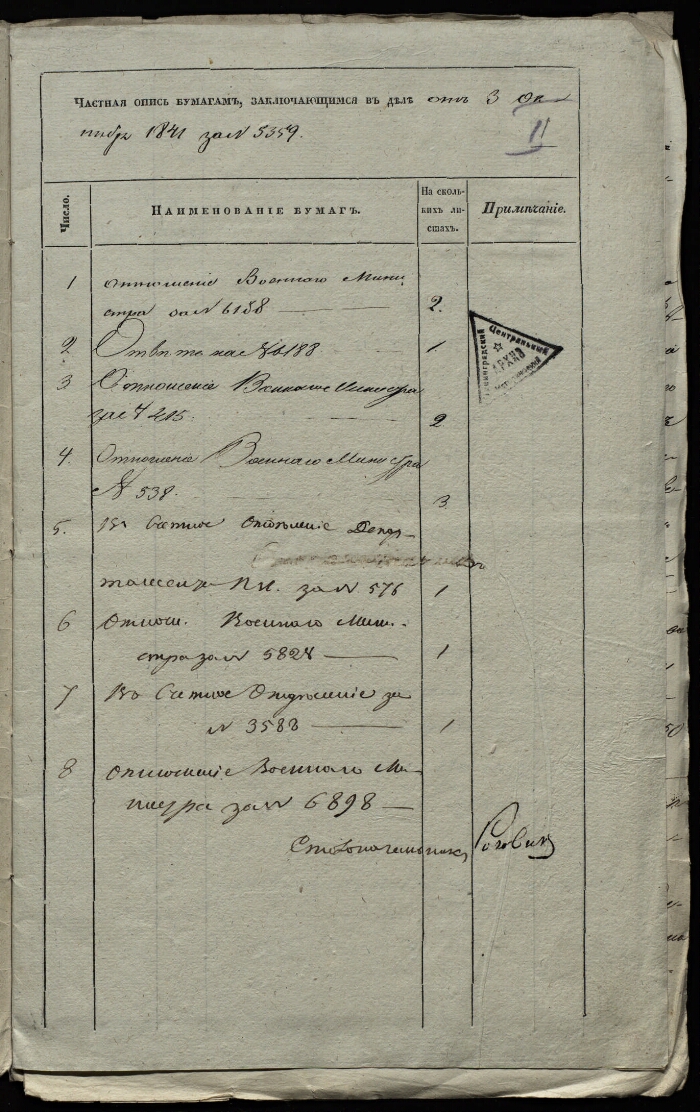 Частная опись бумагамъ, заключающимся въ делѣ отъ 3 Ок
тября 1841 за № 5359.
II
Число.
Наименованіе бумагъ.
На сколь-
кихъ ли-
стахъ.
Примѣчаніе.
1 Отношеніе Военнаго Мини
стра за № 6158 2.
2 Отвѣтъ на № 6188 1.
3 Отношеніе Военнаго Министра
за № 4215. 2
4. Отношеніе Военнаго Министра
№ 538. 3
5. Въ Счетное Отдѣленіе Депар-
тамента за № 576 1
6 Отнош. Военнаго Мини-
стра за № 5828 1
7 Въ Счетное Отдѣленіе за
№ 3588 1
8 Отношеніе Военнаго Ми-
нистра за № 6898
Столоначальникъ
Центральный
Ленинградский
АРХИВ